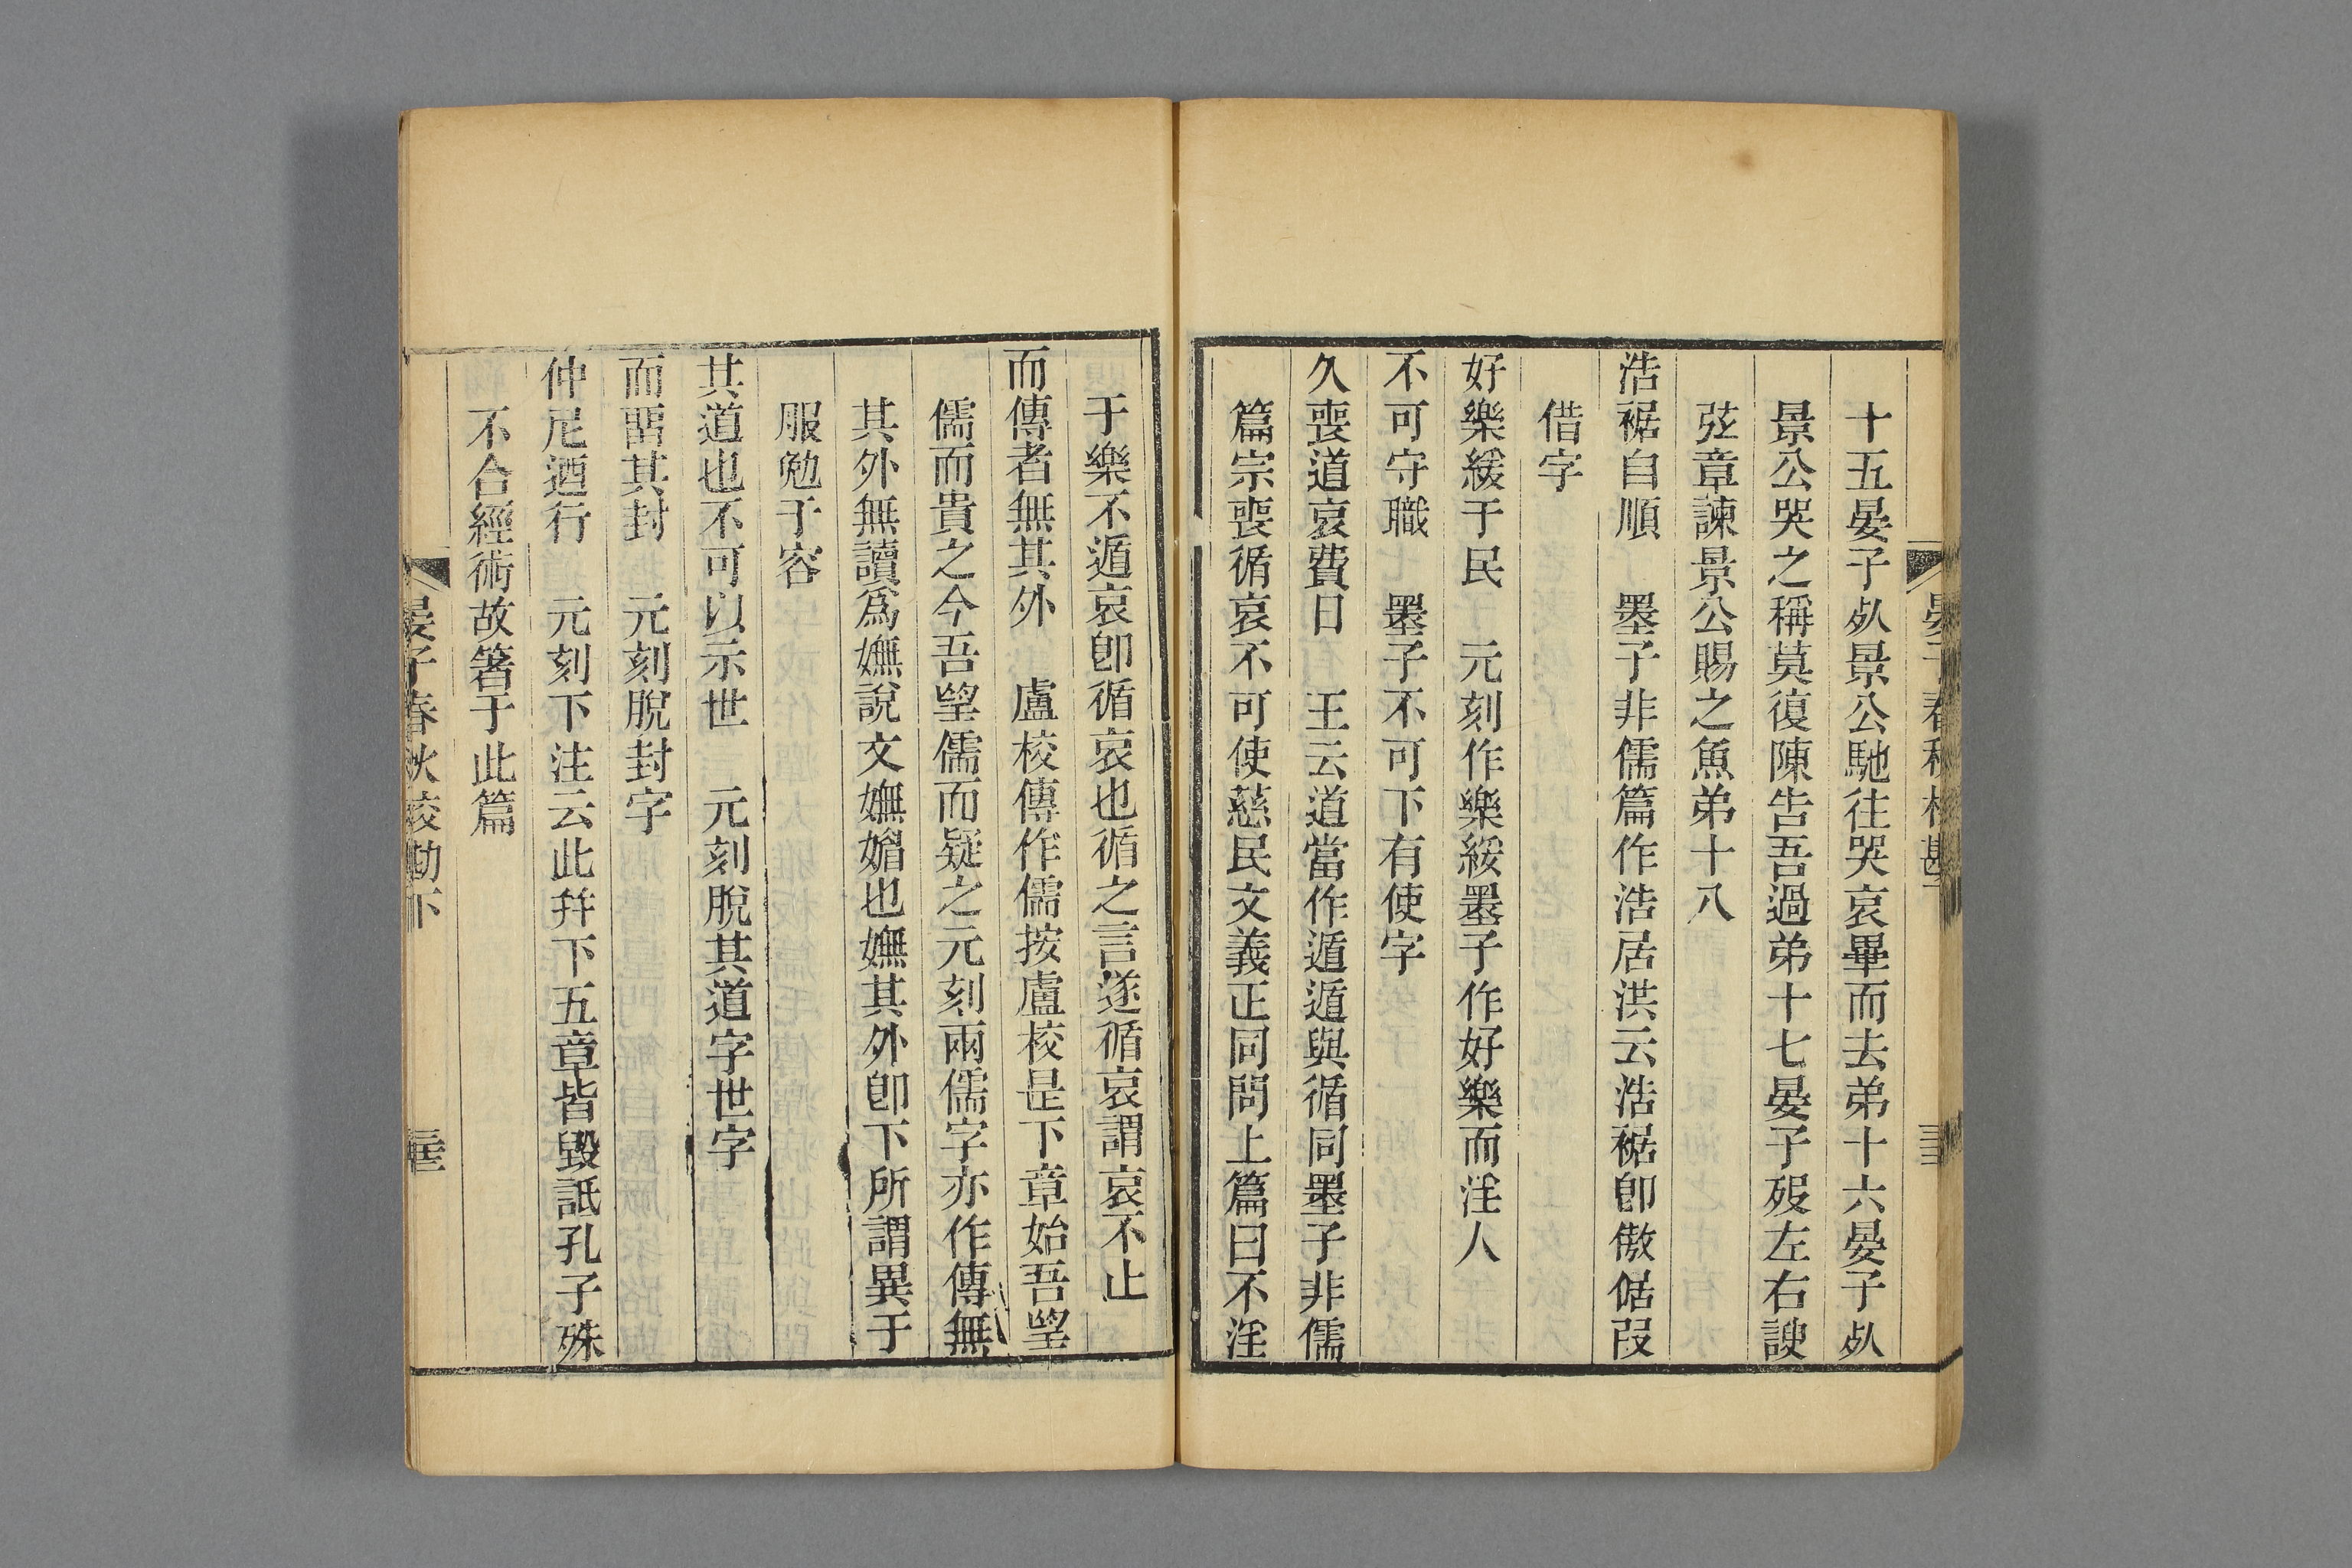 晏子春秋校勘
十五晏子𣦸景公馳往哭哀畢而去弟十六晏子𣦸
景公哭之稱莫復陳告吾過弟十七晏子歿左右諛
弦章諫景公賜之魚弟十八
浩裾自順　墨子非儒篇作浩居洪云浩裾卽傲倨叚
借字
好樂緩于民　元刻作樂綏墨子作好樂而淫人
不可守職　墨子不可下有使字
久喪道哀費日　王云道當作遁遁與循同墨子非儒
篇宗喪循哀不可使慈民文義正同問上篇曰不淫
于樂不遁哀卽循哀也循之言遂循哀謂哀不止
而傳者無其外　盧校傳作儒按盧校是下章始吾望
儒而貴之今吾望儒而疑之元刻兩儒字亦作傳無
其外無讀爲嫵說文嫵媚也嫵其外卽下所謂異于
服勉于容
其道也不可以示世　元刻脫其道字世字
而畱其封　元刻脫封字
仲尼迺行　元刻下注云此幷下五章皆毀詆孔子殊
不合經術故箸于此篇
晏子春秋校勘下